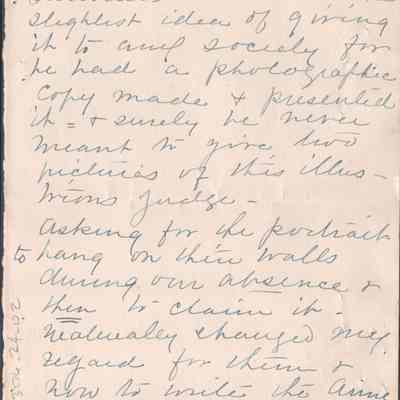 slightest idea of giving
it to any society for
he had a photographic
copy made & presented
it = & surely he never
meant to give two
pictures of this illus-
trious judge -
Asking for the portrait
to hang on their walls
during our absence &
then to claim it -
naturally changed my
regard for them &
now to write the